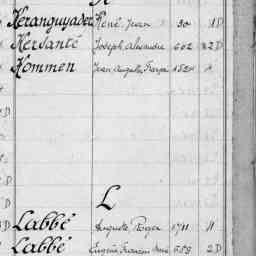 Keranguyader René, Jean 30 1D
Hersanté Joseph Alexandre 602 2D
Hommen Jean, Auguste, 1524
L
Labbé Auguste, Roger 1711 11
Labbé Eugène, François 2D